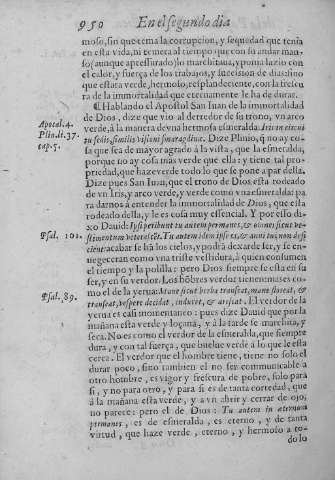 950 En el segundo dia
moso, sin que tema la corrupcion, y sequedad que tenia
en esta vida, ni temera al tiempo que con su andar man-
so (aunque apressurado) lo marchitaua, y ponia lazio con
el calor, y fuerça de los trabajos, y sucession de dias: sino
que estara verde, hermoso, resplandeciente, con la fresca
ra de la immortalidad que eternamente le ha de durar.
Hablando el Apostol San Iuan de la immortalidad
de Dios, dize que vio al derredor de su trono, vn arco
verde, à la manera de vna hermosa esmeralda: Iris in circui
tu sedis, similis visioni smaragdinæ. Dize Plinio, q̃ no ay co-
sa que sea de mayor agrado à la vista, que la esmeralda,
porque no ay cosa mas verde que ella: y tiene tal pro-
priedad, que haze verde todo lo que se pone a par della.
Dize pues San Iuan, que el trono de Dios està rodeado
de vn Iris, y arco verde, y verde como vna esmeralda: pa
ra darnos à entender la immortalidad de Dios, que esta
rodeado della, y le es cosa muy essencial. Y por esso di-
xo Dauid: Ipsi peribunt tu autem permanes, & omnes sicut ve-
stimentum veterascēt. Tu autem idem ipse es, & anni tui non defi
cient: acabarse hã los cielos, y podrà dexar de ser, y se en-
negeceran como vna triste vestidura, à quien consumen
el tiempo y la polilla: pero Dios siempre se esta en su
ser, y en su verdor. Los hõbres verdor tienen mas es co-
mo el de la yerua: Mane sicut herba transeat, mane floreat, &
transeat, vespere decidat, induret, & arescat. El verdor de la
yerua es casi momentaneo: pues dize Dauid que por la
mañana esta verde y loçana, y à la tarde se marchita, y
seca. No es como el verdor de la esmeralda, que siempre
dura, y con tal fuerça, que buelue verde à lo que le esta
cerca. El verdor que el hombre tiene, tiene no solo el
durar poco, sino tambien el no ser communicable a
otro hombre, es vigor y frescura de pobre, solo para
si, y no para otro, y para si es de tanta cortedad, que
à la mañana esta verde, y à vn abrir y cerrar de ojo,
no parece: pero el de Dios: Tu autem in æternum
permanes, es de esmeralda, es eterno, y de tanta
virtud, que haze verde, eterno, y hermoso a to-
do lo
Apocal. 4.
Plin. li. 37.
cap. 5.
Psal. 101.
Psal. 89.